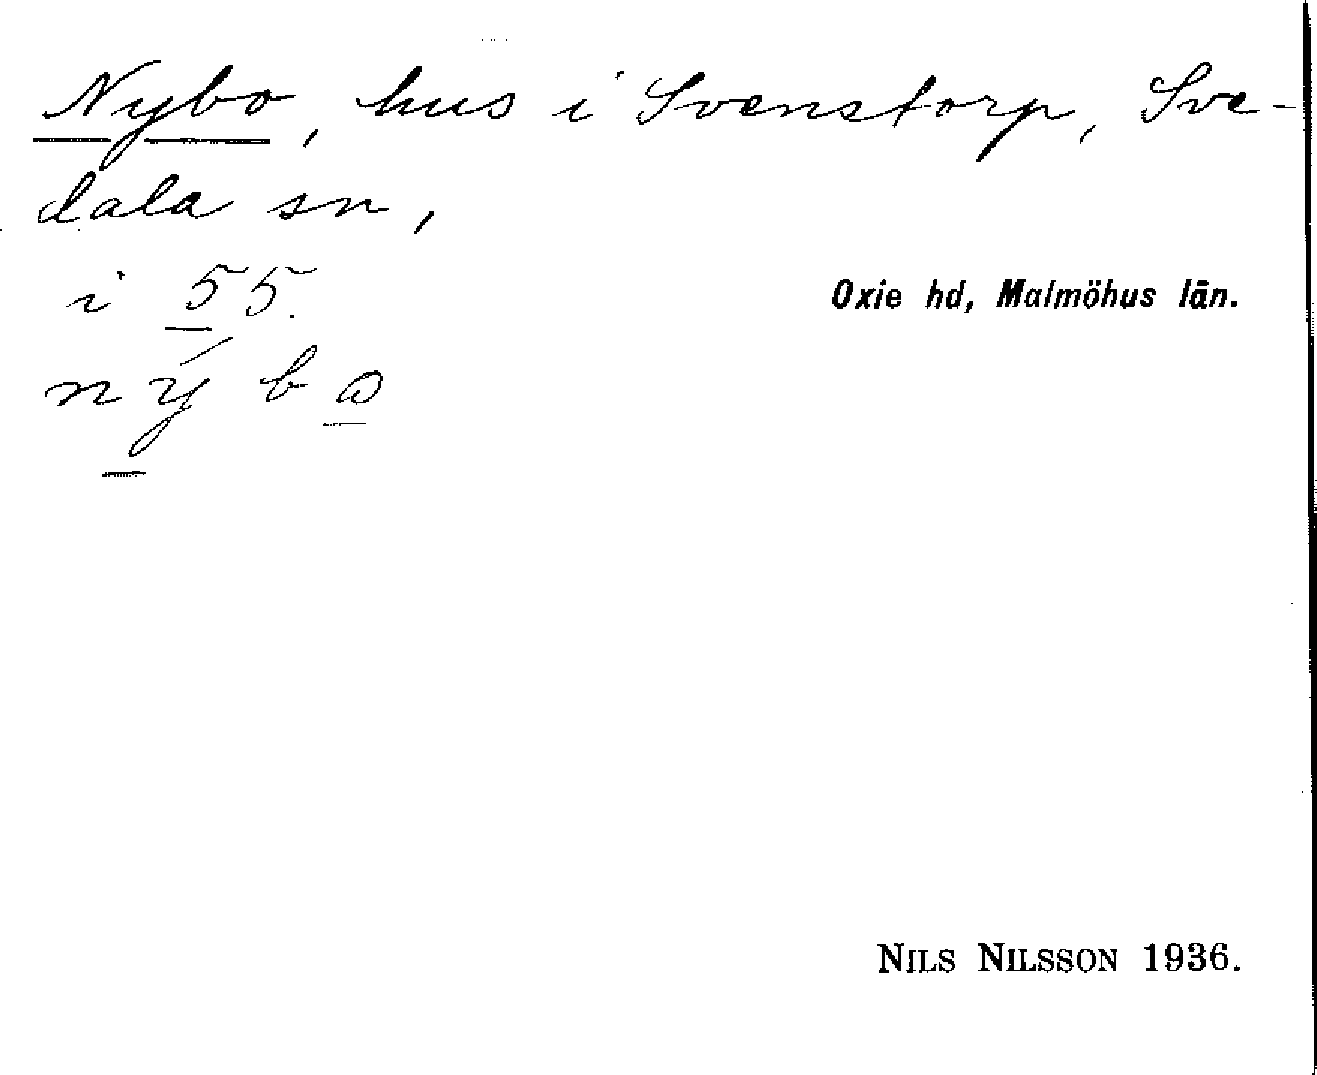 Nybo, hus i Svenstorp, Sve-
dala sn,
i 55.
Oxie hd, Malmöhus län.
ný b ω
NILS NILSSON 1936.